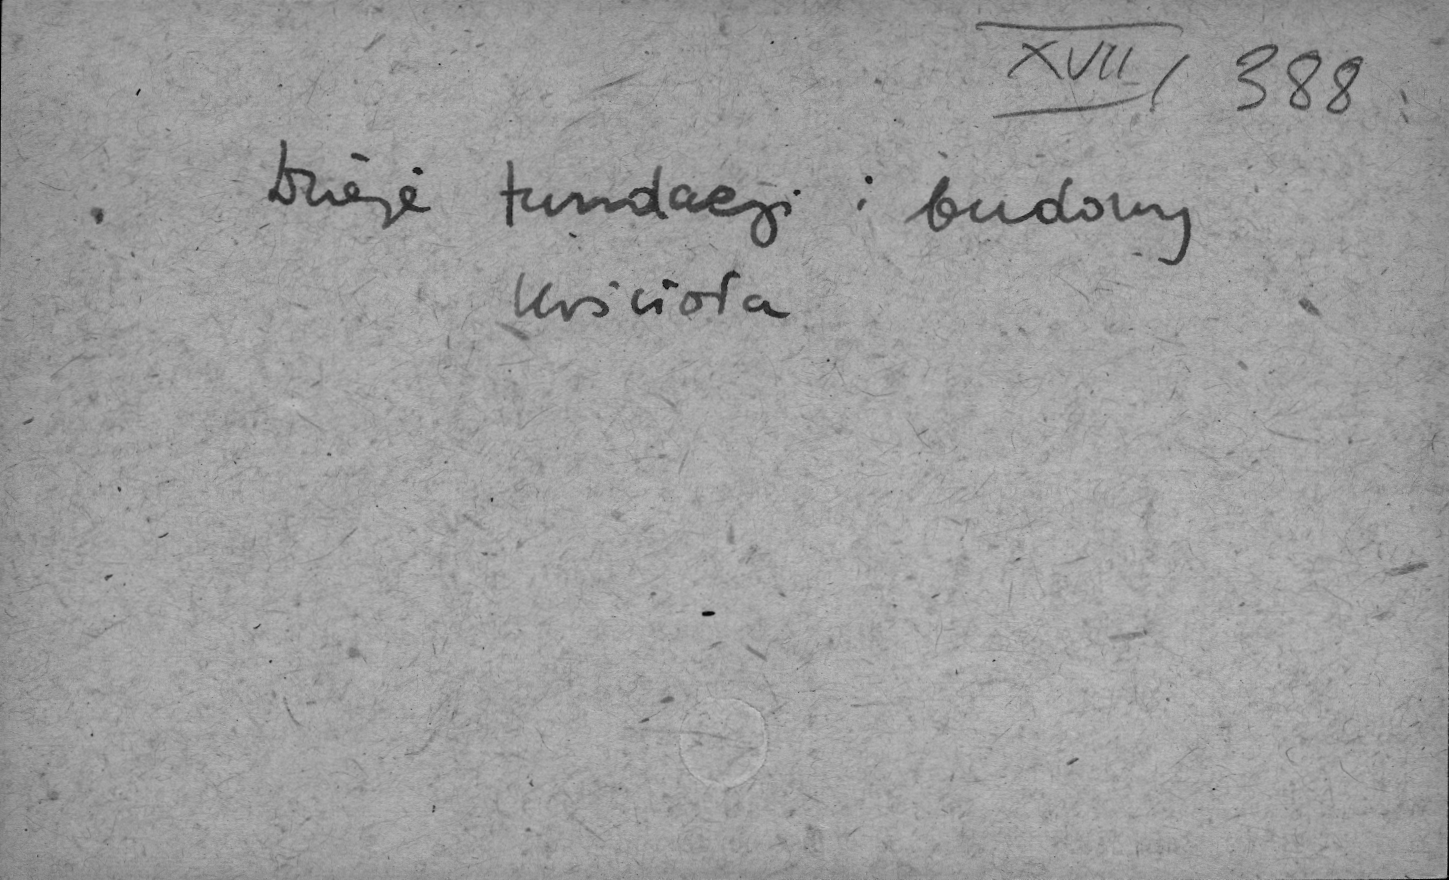 XVII / 388
Dzieje fundacji i budowy
kościoła